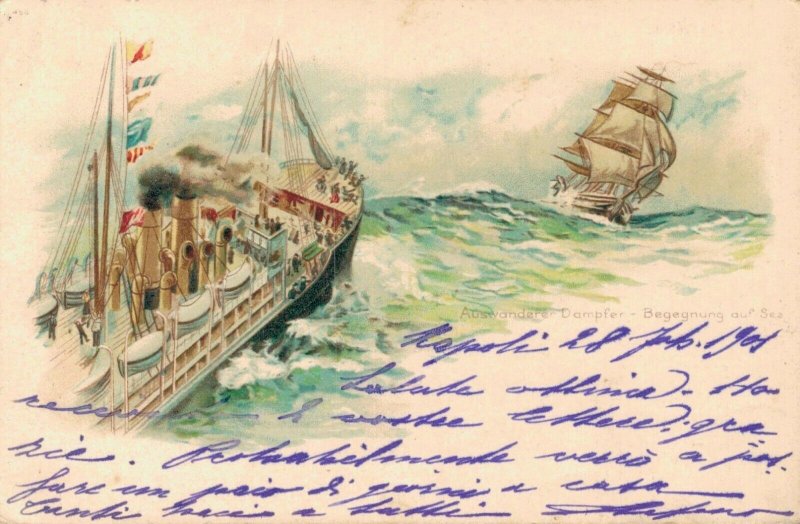 Auswanderer Dampfer - Begegnung auf See
Napoli 28 Feb. 1901
Salute ottima. Ho
ricevuto le vostre lettere: gra
zie. Probabilmente verrò a pas-
sare un paio di giorni a casa
Tanti baci a tutti